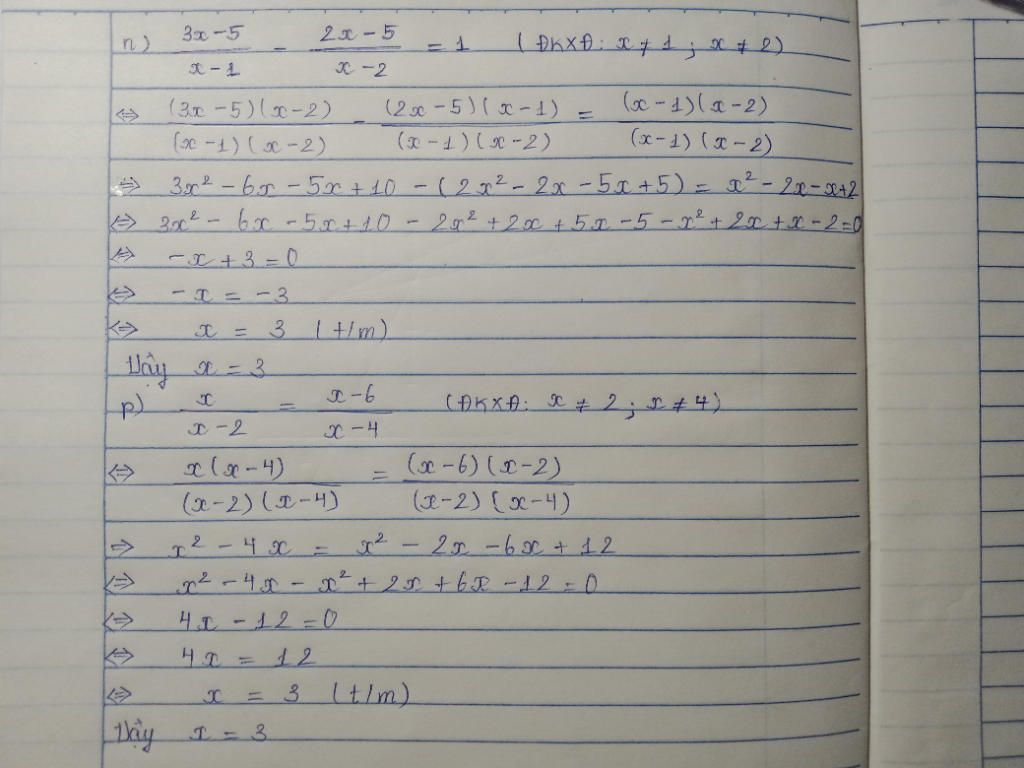 n) (3x-5)/(x-1) - (2x-5)/(x-2) = 1 (ĐKXĐ: x ≠ 1 ; x ≠ 2)
⇔ (3x-5)(x-2)/(x-1)(x-2) - (2x-5)(x-1)/(x-1)(x-2) = (x-1)(x-2)/(x-1)(x-2)
⇒ 3x² - 6x - 5x + 10 - (2x² - 2x - 5x + 5) = x² - 2x - x + 2
⇔ 3x² - 6x - 5x + 10 - 2x² + 2x + 5x - 5 - x² + 2x + x - 2 = 0
⇔ -x + 3 = 0
⇔ -x = -3
⇔ x = 3 (t/m)
Vậy x = 3
p) x/(x-2) = (x-6)/(x-4) (ĐKXĐ: x ≠ 2 ; x ≠ 4)
⇔ x(x-4)/(x-2)(x-4) = (x-6)(x-2)/(x-2)(x-4)
⇒ x² - 4x = x² - 2x - 6x + 12
⇔ x² - 4x - x² + 2x + 6x - 12 = 0
⇔ 4x - 12 = 0
⇔ 4x = 12
⇔ x = 3 (t/m)
Vậy x = 3